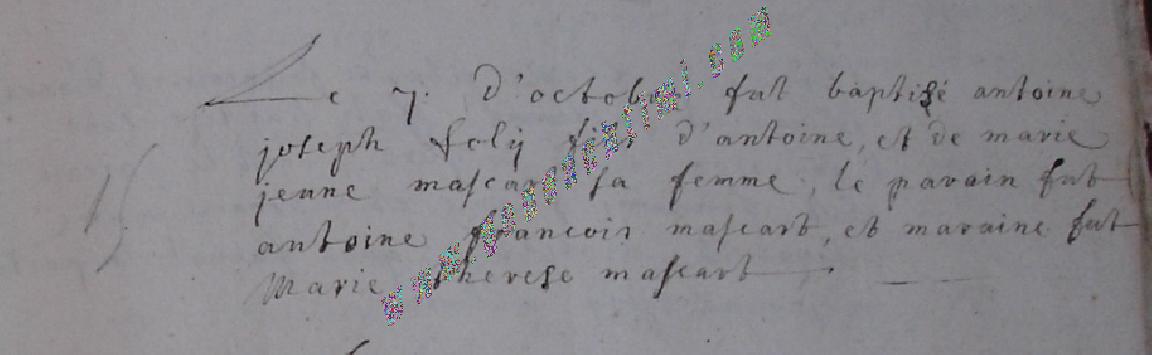 Le 7. d'octobre fut baptisé antoine
joseph foly fils d'antoine, et de marie
jenne mascart sa femme, le parain fut
antoine francois mascart, et maraine fut
Marie therese mascart
15